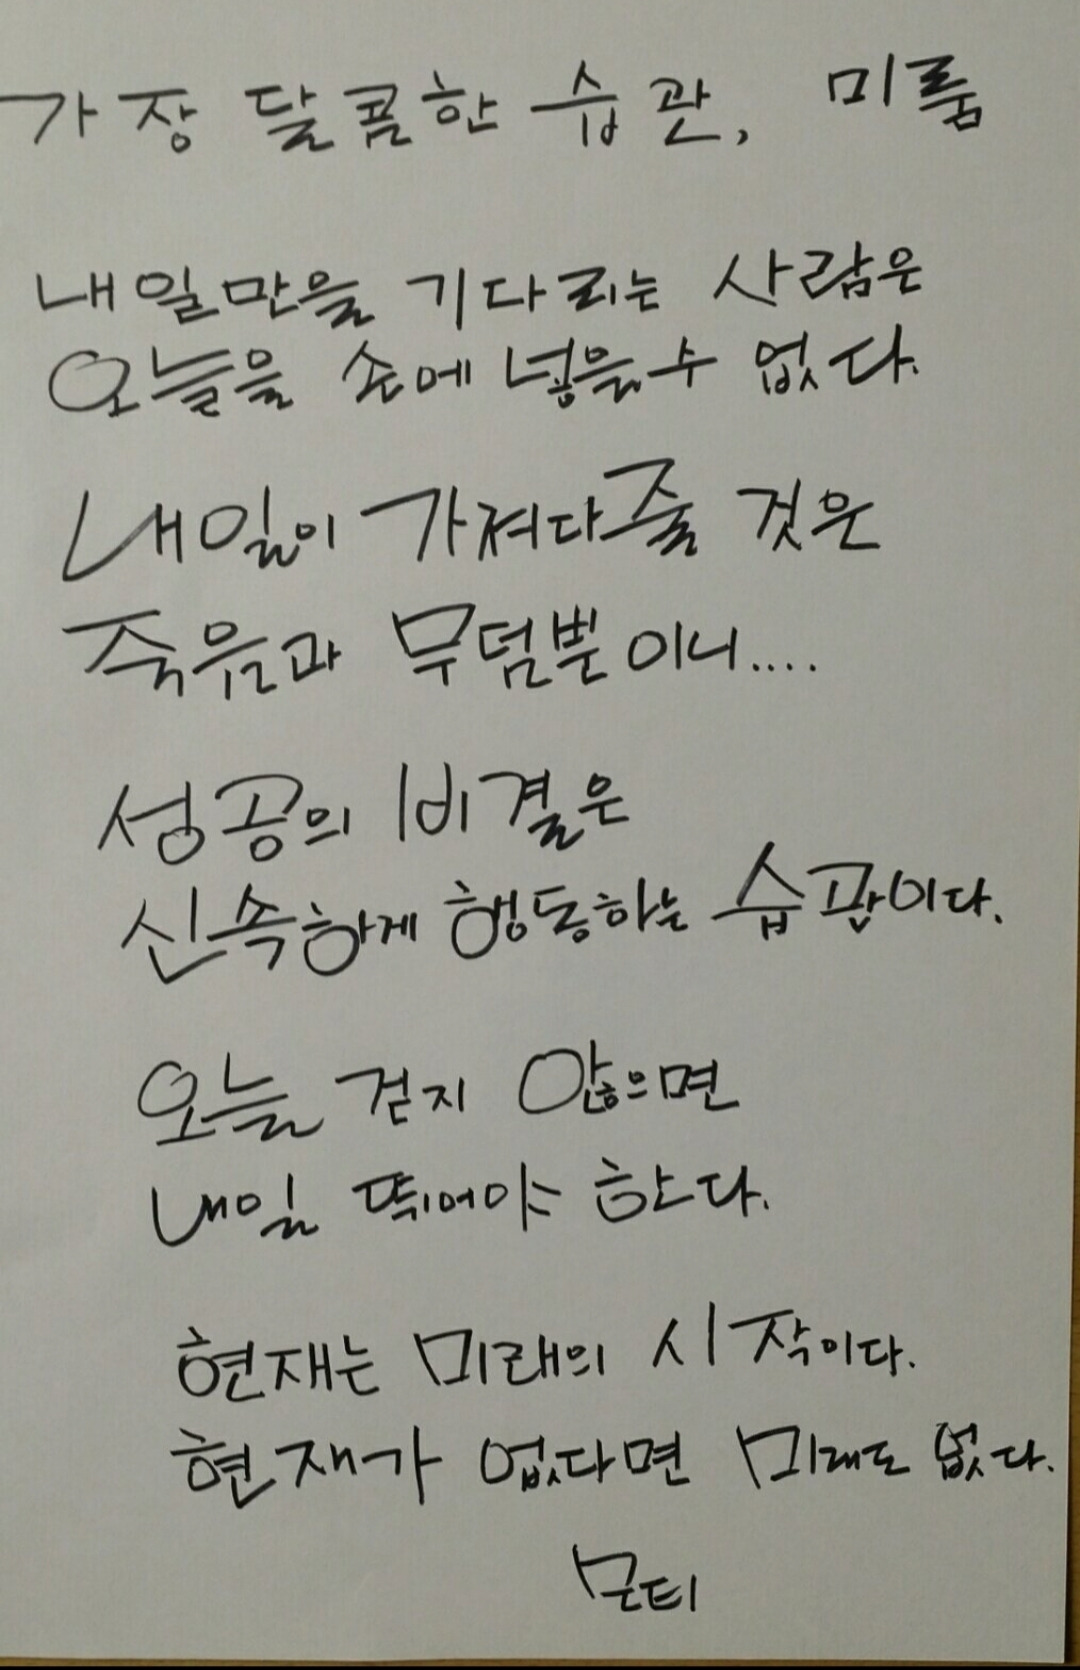 가장 달콤한 습관, 미룸
내일만을 기다리는 사람은
오늘을 손에 넣을 수 없다.
내일이 가져다줄 것은
죽음과 무덤뿐이니....
성공의 비결은
신속하게 행동하는 습관이다.
오늘 걷지 않으면
내일 뛰어야 한다.
현재는 미래의 시작이다.
현재가 없다면 미래도 없다.
몬티